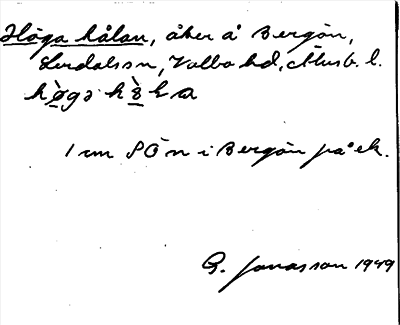 Höga hålan, åker å Bergön,
Lurdalssn, Valbo hd, Älvsb. l.
1 cm SÖ n i Bergön på ek.
G. Jonasson 1949